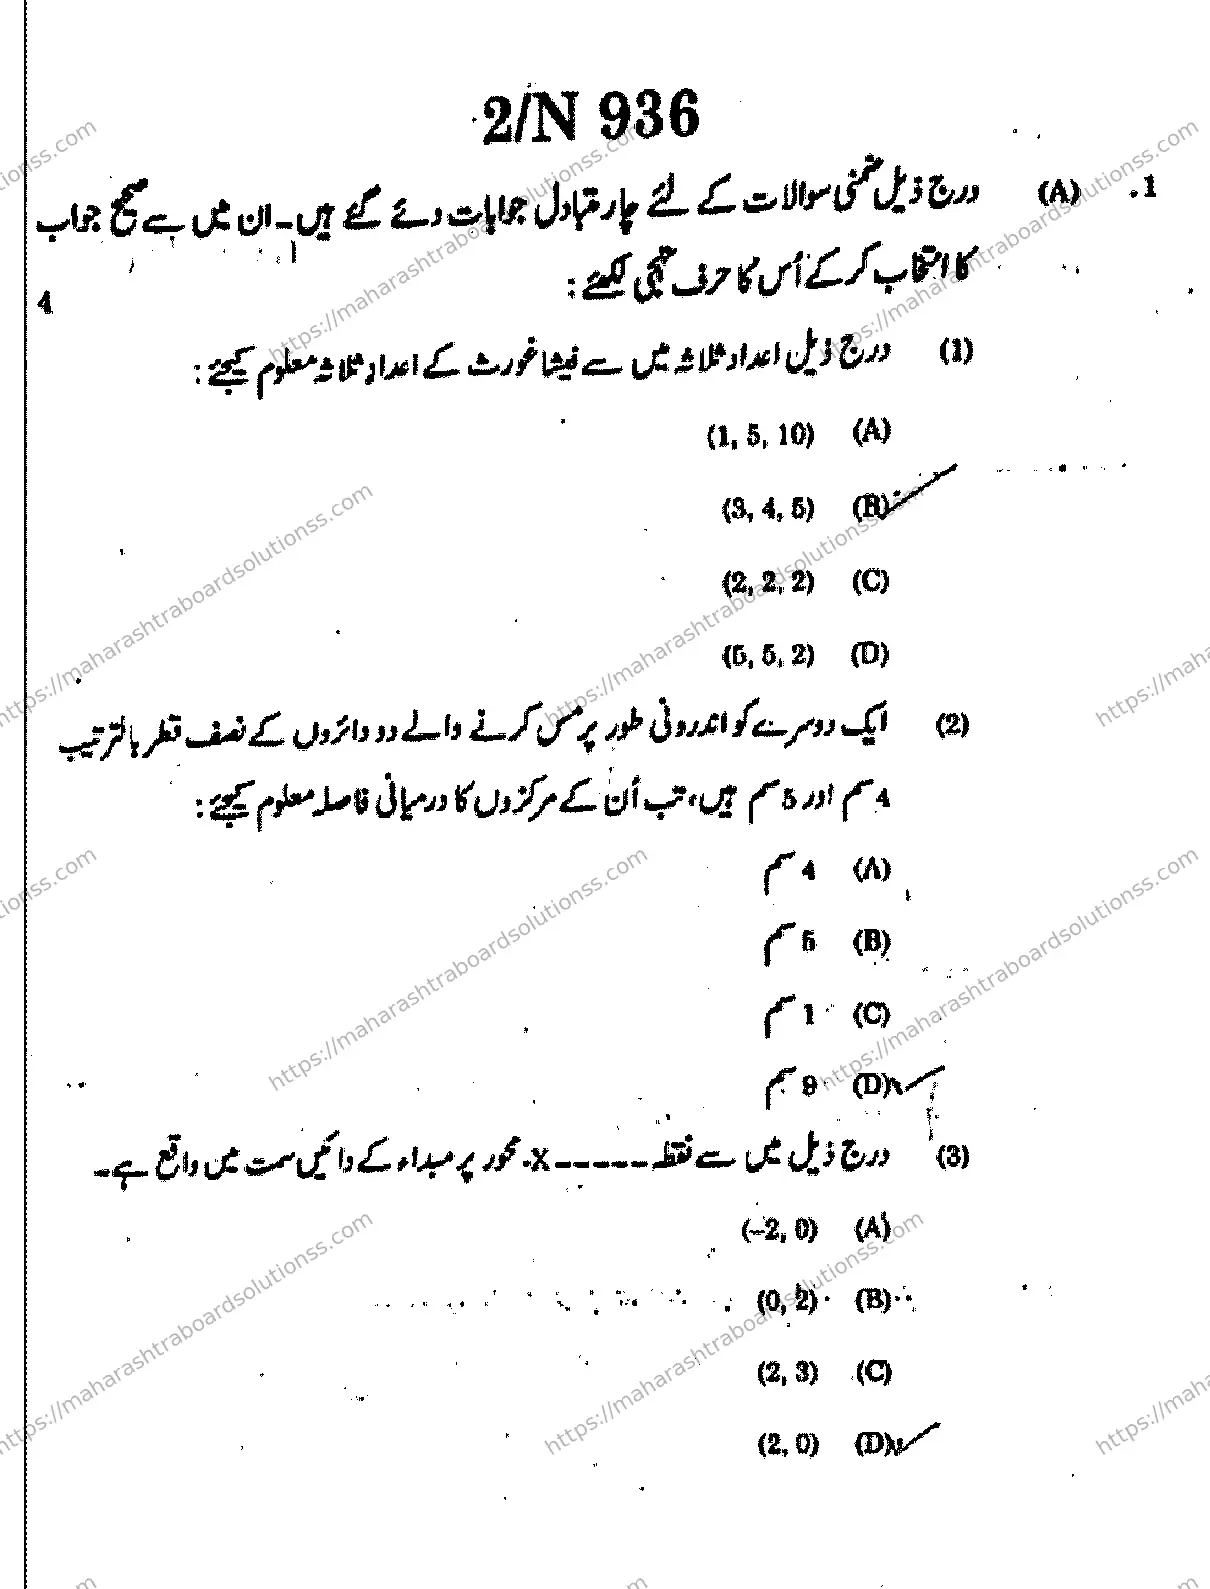 2/N 936
1. (A) درج ذیل ضمنی سوالات کے لئے چار متبادل جوابات دئے گئے ہیں۔ ان میں سے صحیح جواب
کا انتخاب کر کے اُس کا حرف تہجی لکھئے :
4
(1) درج ذیل اعداد ثلاثہ میں سے فیثا غورث کے اعدادِ ثلاثہ معلوم کیجئے :
(A) (1, 5, 10)
(B) (3, 4, 5)
(C) (2, 2, 2)
(D) (5, 5, 2)
(2) ایک دوسرے کو اندرونی طور پر مس کرنے والے دو دائروں کے نصف قطر بالترتیب
4 سم اور 5 سم ہیں، تب اُن کے مرکزوں کا درمیانی فاصلہ معلوم کیجئے :
(A) 4 سم
(B) 5 سم
(C) 1 سم
(D) 9 سم
(3) درج ذیل میں سے نقطہ ----- X- محور پر مبداء کے دائیں سمت میں واقع ہے۔
(A) (–2, 0)
(B) (0, 2)
(C) (2, 3)
(D) (2, 0)
https://maharashtraboardsolutionss.com